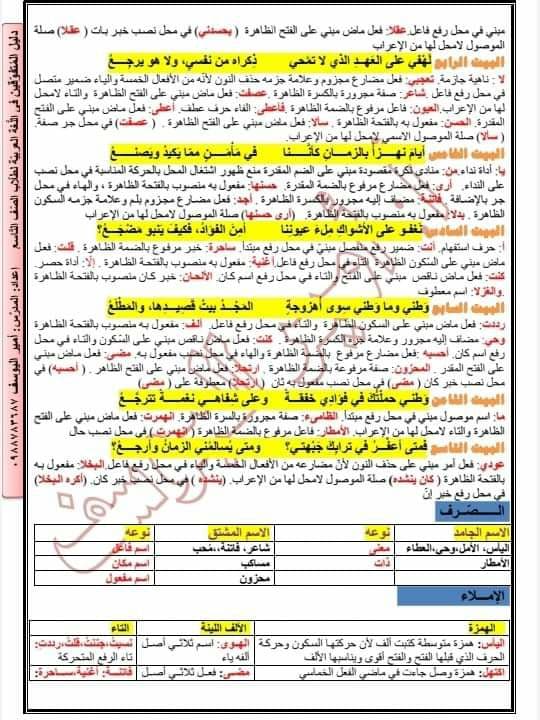 مبني في محل رفع فاعل. عقلا: فعل ماض مبني على الفتح الظاهرة ( يحسدني) في محل نصب خبر بات ( عقلا) صلة
الموصول لامحل لها من الإعراب
البيت الرابع لَهْفي على العَهدِ الذي لا تمّحي ذِكراه من نفسي، ولا هو يرجعُ
لا : ناهية جازمة. تعجبي: فعل مضارع مجزوم وعلامة جزمه حذف النون لأنه من الأفعال الخمسة والياء ضمير متصل
في محل رفع فاعل. شاعر: صفة مجرورة بالكسرة الظاهرة. عصفت: فعل ماض مبني على الفتح الظاهرة والتاء لامحل
لها من الإعراب. العيون: فاعل مرفوع بالضمة الظاهرة. فأعطى: الفاء حرف عطف. أعطى: فعل ماض مبني على الفتح
المقدرة. الحسن: مفعول به منصوب بالفتحة الظاهرة . سالا: فعل ماض مبني على الفتحة . ( عصفت) في محل جر صفة.
( سالا) صلة الموصول الاسمي لامحل لها من الإعراب.
البيت الخامس أيامَ نهزأُ بالزمانِ كأننا في مأمنٍ ممّا يكيدُ ويصنعُ
يا: أداة نداء. من: منادى نكرة مقصودة مبني على الضم المقدرة منع ظهور اشتغال المحل بالحركة المناسبة في محل نصب
على النداء. أرى: فعل مضارع مرفوع بالضمة المقدرة. حسنها: مفعول به منصوب بالفتحة الظاهرة ، والهاء في محل
جر بالإضافة. فاتنة: مضاف إليه مجرور بالكسرة الظاهرة . أجد: فعل مضارع مجزوم بلم وعلامة جزمه السكون
الظاهرة . بدلا: مفعول به منصوب بالفتحة الظاهرة. (أرى حسنها)
البيت السادس نغفو على الأشواكِ ملءَ عيونِنا أمِنَ الفؤادُ، فكيفَ ينبو مضجعُ؟
أ: حرف استفهام. أنت: ضمير رفع منفصل مبنيّ في محل رفع مبتدأ. ساحرة: خبر مرفوع بالضمة الظاهرة . قلت: فعل
ماض مبني على السكون الظاهرة والتاء في محل رفع فاعل. أغنية: مفعول به منصوب بالفتحة الظاهرة . إلّا: أداة حصر.
كنت: فعل ماض ناقص مبني على الفتح والتاء في محل رفع اسم كان. الألحان: خبر كان منصوب بالفتحة الظاهرة.
والغزلا: اسم معطوف
البيت السابع وطني وما وطني سوى أهزوجةٍ المَجْدُ بيتُ قصيدِها، والمطلعُ
رددت: فعل ماض مبني على السكون الظاهرة والتاء في محل رفع فاعل. ألف: مفعول به منصوب بالفتحة الظاهرة .
وحي: مضاف إليه مجرور وعلامة جره الكسرة الظاهرة . كنت: فعل ماض ناقص مبني على السكون والتاء في محل
رفع اسم كان. أحسبه: فعل مضارع مرفوع بالضمة الظاهرة والهاء في محل نصب مفعول به. مضى: فعل ماض مبني على
الفتح المقدر . المحزون: صفة مرفوعة بالضمة الظاهرة . ارتحلا: فعل ماض مبني على الفتح الظاهرة (أحسبه) في
محل نصب خبر كان ( مضى) في محل نصب مفعول به ثان ( ارتحلا) معطوفة على (مضى)
البيت الثامن وطني حملتُكَ في فؤادي خفقةً وعلى شفاهي نغمةً تترجّعُ
ما: اسم موصول في محل رفع مبتدأ. الظامىء: صفة مجرورة بالسرة الظاهرة. انهمرت: فعل ماض مبني على الفتح
الظاهرة والتاء لامحل لها من الإعراب. الأمطار: فاعل مرفوع بالضمة الظاهرة ( انهمرت) في محل نصب حال
البيت التاسع فمتى أعفّرُ في ترابكَ جَبهتي؟ ومتى يُسالمني الزمانُ وأرجعُ؟
عودي: فعل أمر مبني على حذف النون لأنّ مضارعه من الأفعال الخمسة والياء في محل رفع فاعل. البخلا: مفعول به منصوب
بالفتحة الظاهرة ( كان ينشده) صلة الموصول لامحل لها من الإعراب. (ينشده ) في محل نصب خبر كان. (أكره البخلا)
في محل رفع خبر إنّ
الـــصّـــرف
الاسم الجامد نوعه الاسم المشتق نوعه
اليأس، الأمل،وحي،العطاء معنى شاعر، فاتنة،،مُحب اسم فاعل
الأمطار ذات مساكب اسم مكان
محزون اسم مفعول
الإملاء
الهمزة الألف اللينة التاء
اليأس: همزة متوسطة كتبت ألف لأن حركتها السكون وحركة الهوى: اسم ثلاثي أصل نسيتُ،جئتُ،قلتُ،رددت:
الحرف الذي قبلها الفتح والفتح أقوى ويناسبها الألف ألفه ياء تاء الرفع المتحركة
اكتهل: همزة وصل جاءت في ماضي الفعل الخماسي مضى: فعل ثلاثي أصل فاتنة: أغنية، ساحرة:
دليل المتفوقين في اللغة العربية لطلاب الصف التاسع اعداد: المدرّس: أمير اليوسف ٠٩٨٨٧٨٣٩٨٧